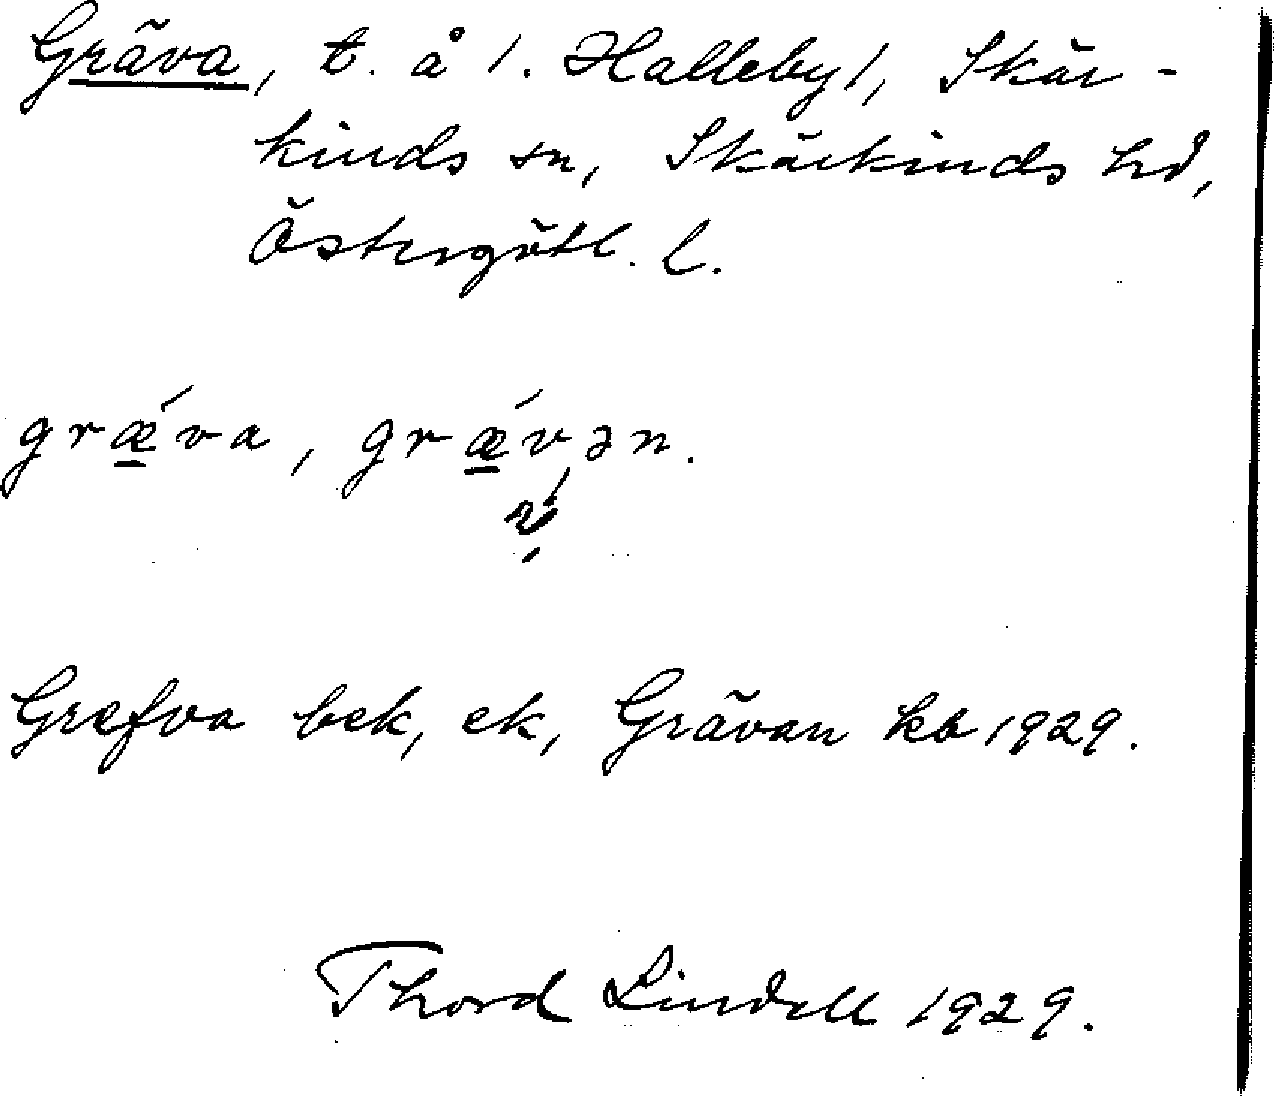 Gräva, t. å /. Halleby /, Skär-
kinds sn, Skärkinds hd,
Östergötl. l.
grǽ̲va, grǽ̲vən.
Græfva bek, ek, Grävan kb 1929.
Thord Lindell 1929.